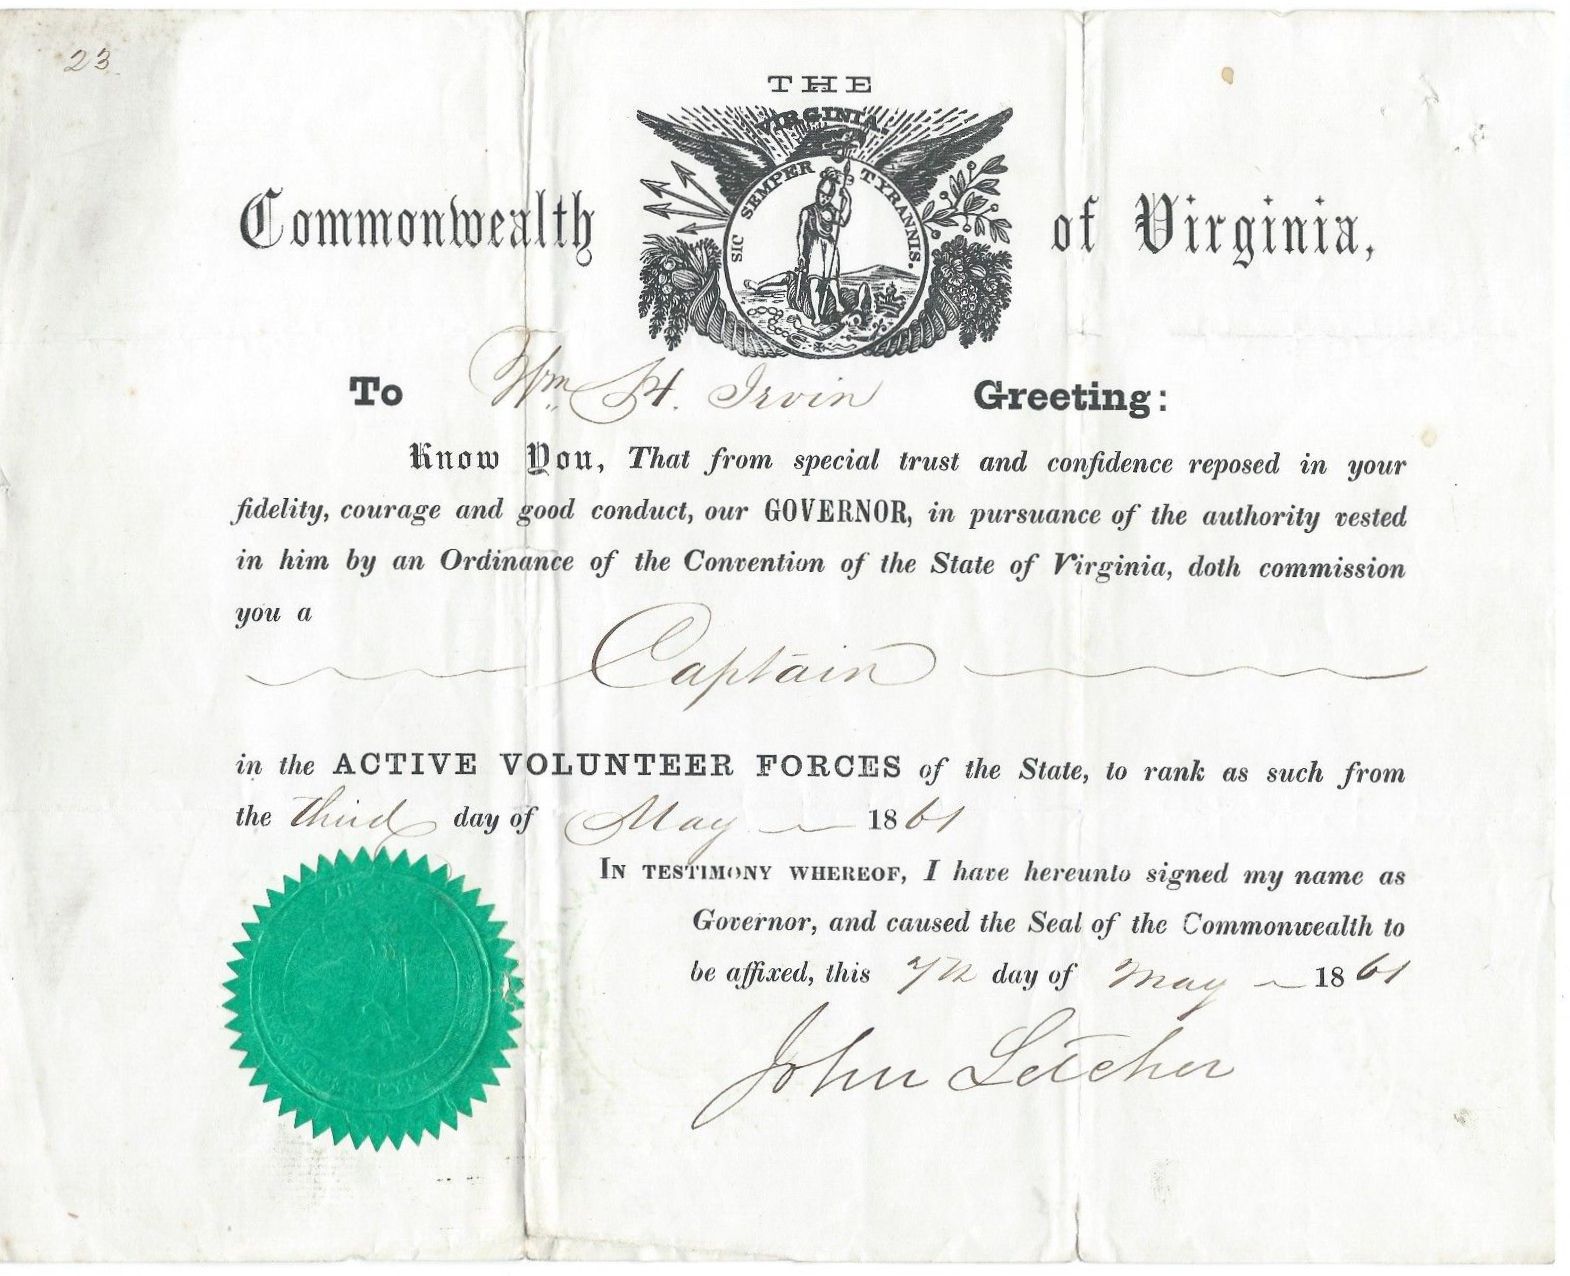 23
THE
VIRGINIA.
SIC SEMPER TYRANNIS.
Commonwealth of Virginia,
To Wm H. Irvin Greeting:
Know You, That from special trust and confidence reposed in your
fidelity, courage and good conduct, our GOVERNOR, in pursuance of the authority vested
in him by an Ordinance of the Convention of the State of Virginia, doth commission
you a
Captain
in the ACTIVE VOLUNTEER FORCES of the State, to rank as such from
the third day of May 1861
IN TESTIMONY WHEREOF, I have hereunto signed my name as
Governor, and caused the Seal of the Commonwealth to
be affixed, this 7th day of May 1861
John Letcher